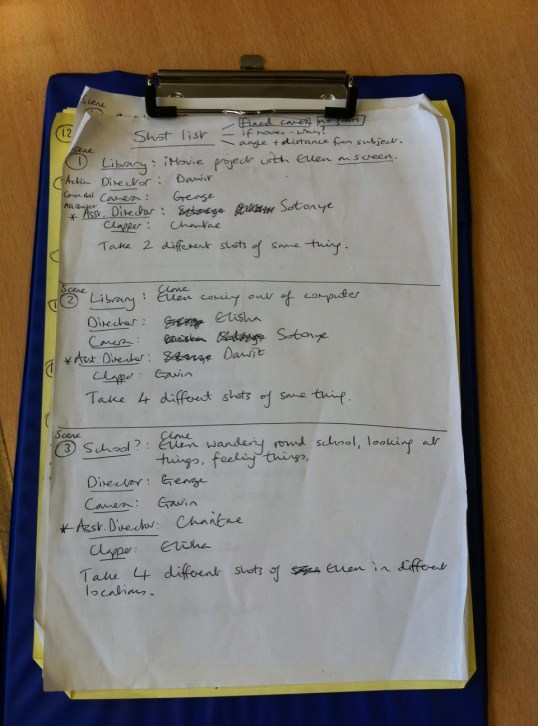 Scene
12
Shot list
Fixed camera no pans
if moves - why?
angle + distance from subject.
Scene
1 Library: iMovie project with Ellen on screen.
Action Director: Dawit
Camera: George
* Asst. Director: Sotonye
Clapper: Chantae
Take 2 different shots of same thing.
Scene
Clone
2 Library: Ellen coming out of computer
Director: Elisha
Camera: Sotonye
* Asst Director: Dawit
Clapper: Gavin
Take 4 different shots of same thing.
Scene
Clone
3 School?: Ellen wandering round school, looking at
things, feeling things.
Director: George
Camera: Gavin
* Asst. Director: Chantae
Clapper: Elisha
Take 4 different shots of Ellen in different
locations.